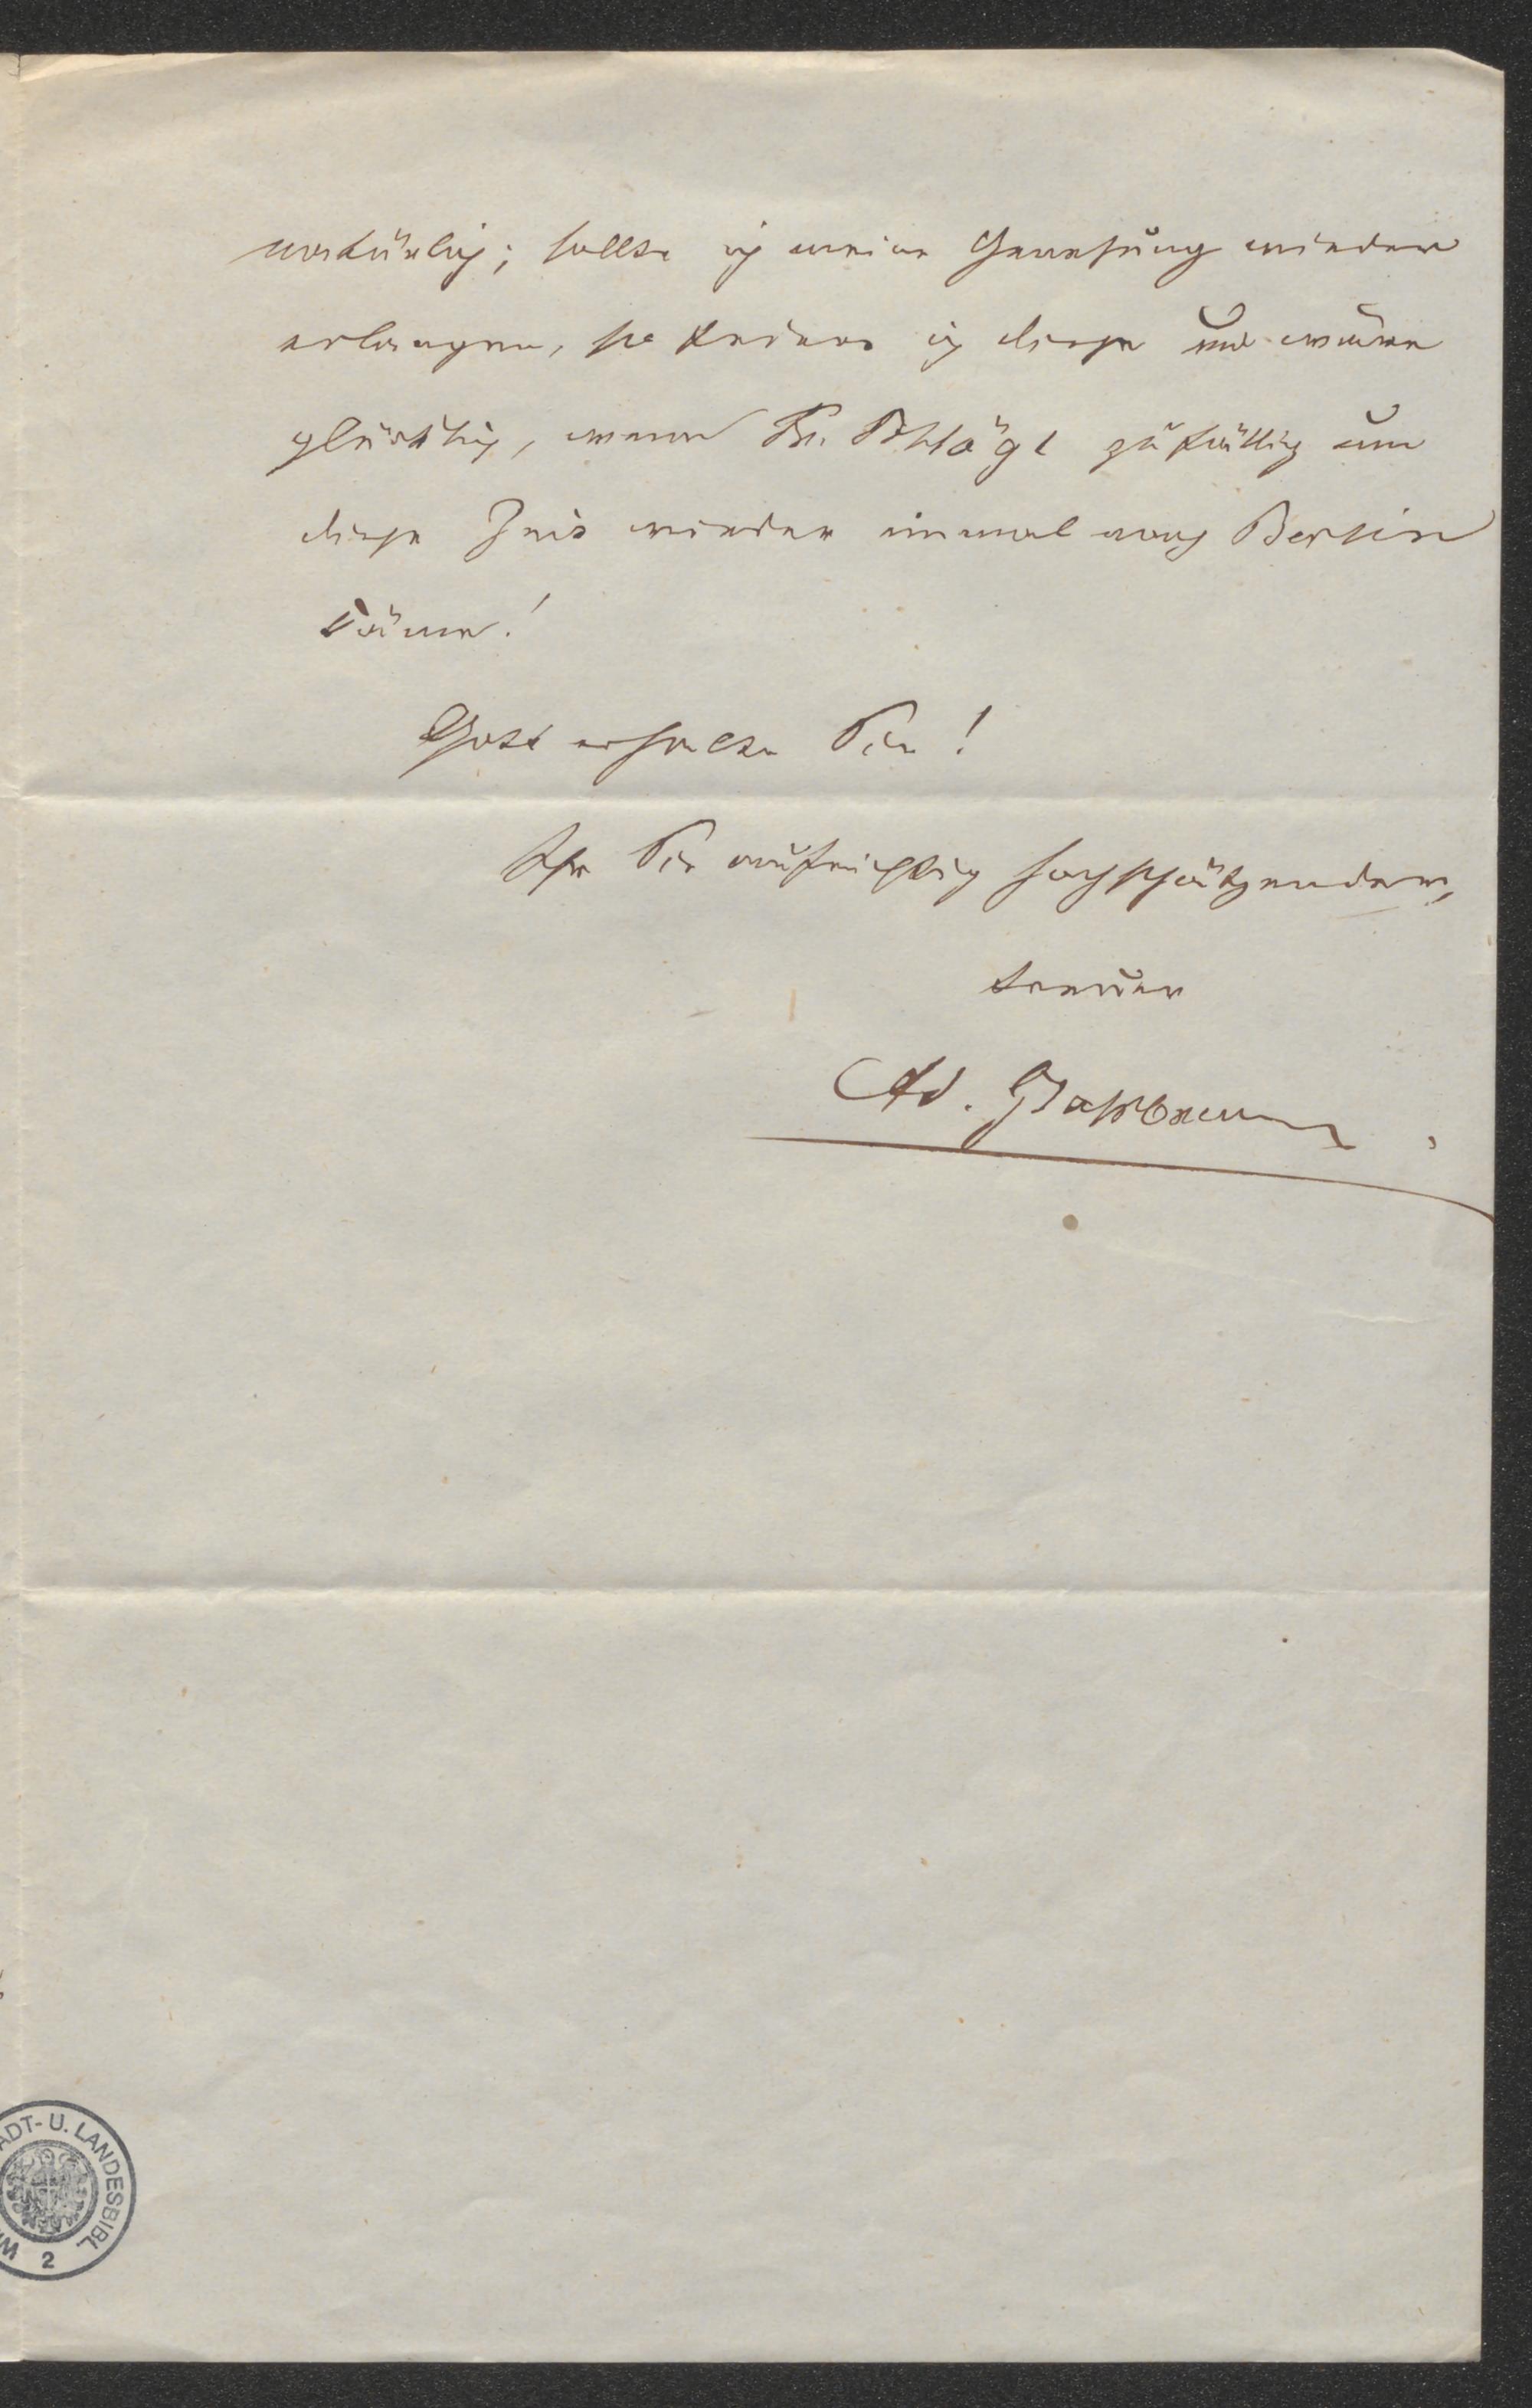 natürlich; sollte ich meine Genesung wieder
erlangen, so ich diese und wäre
glücklich, wenn Fr. Schlögl zufällig um
diese Zeit wieder einmal nach Berlin
käme!
Gott erhalte Sie!
Ihr Sie aufrichtig hochschätzender,
treuer
Ad. Glassbrenner.
ADT- U. LANDESBIBL
2